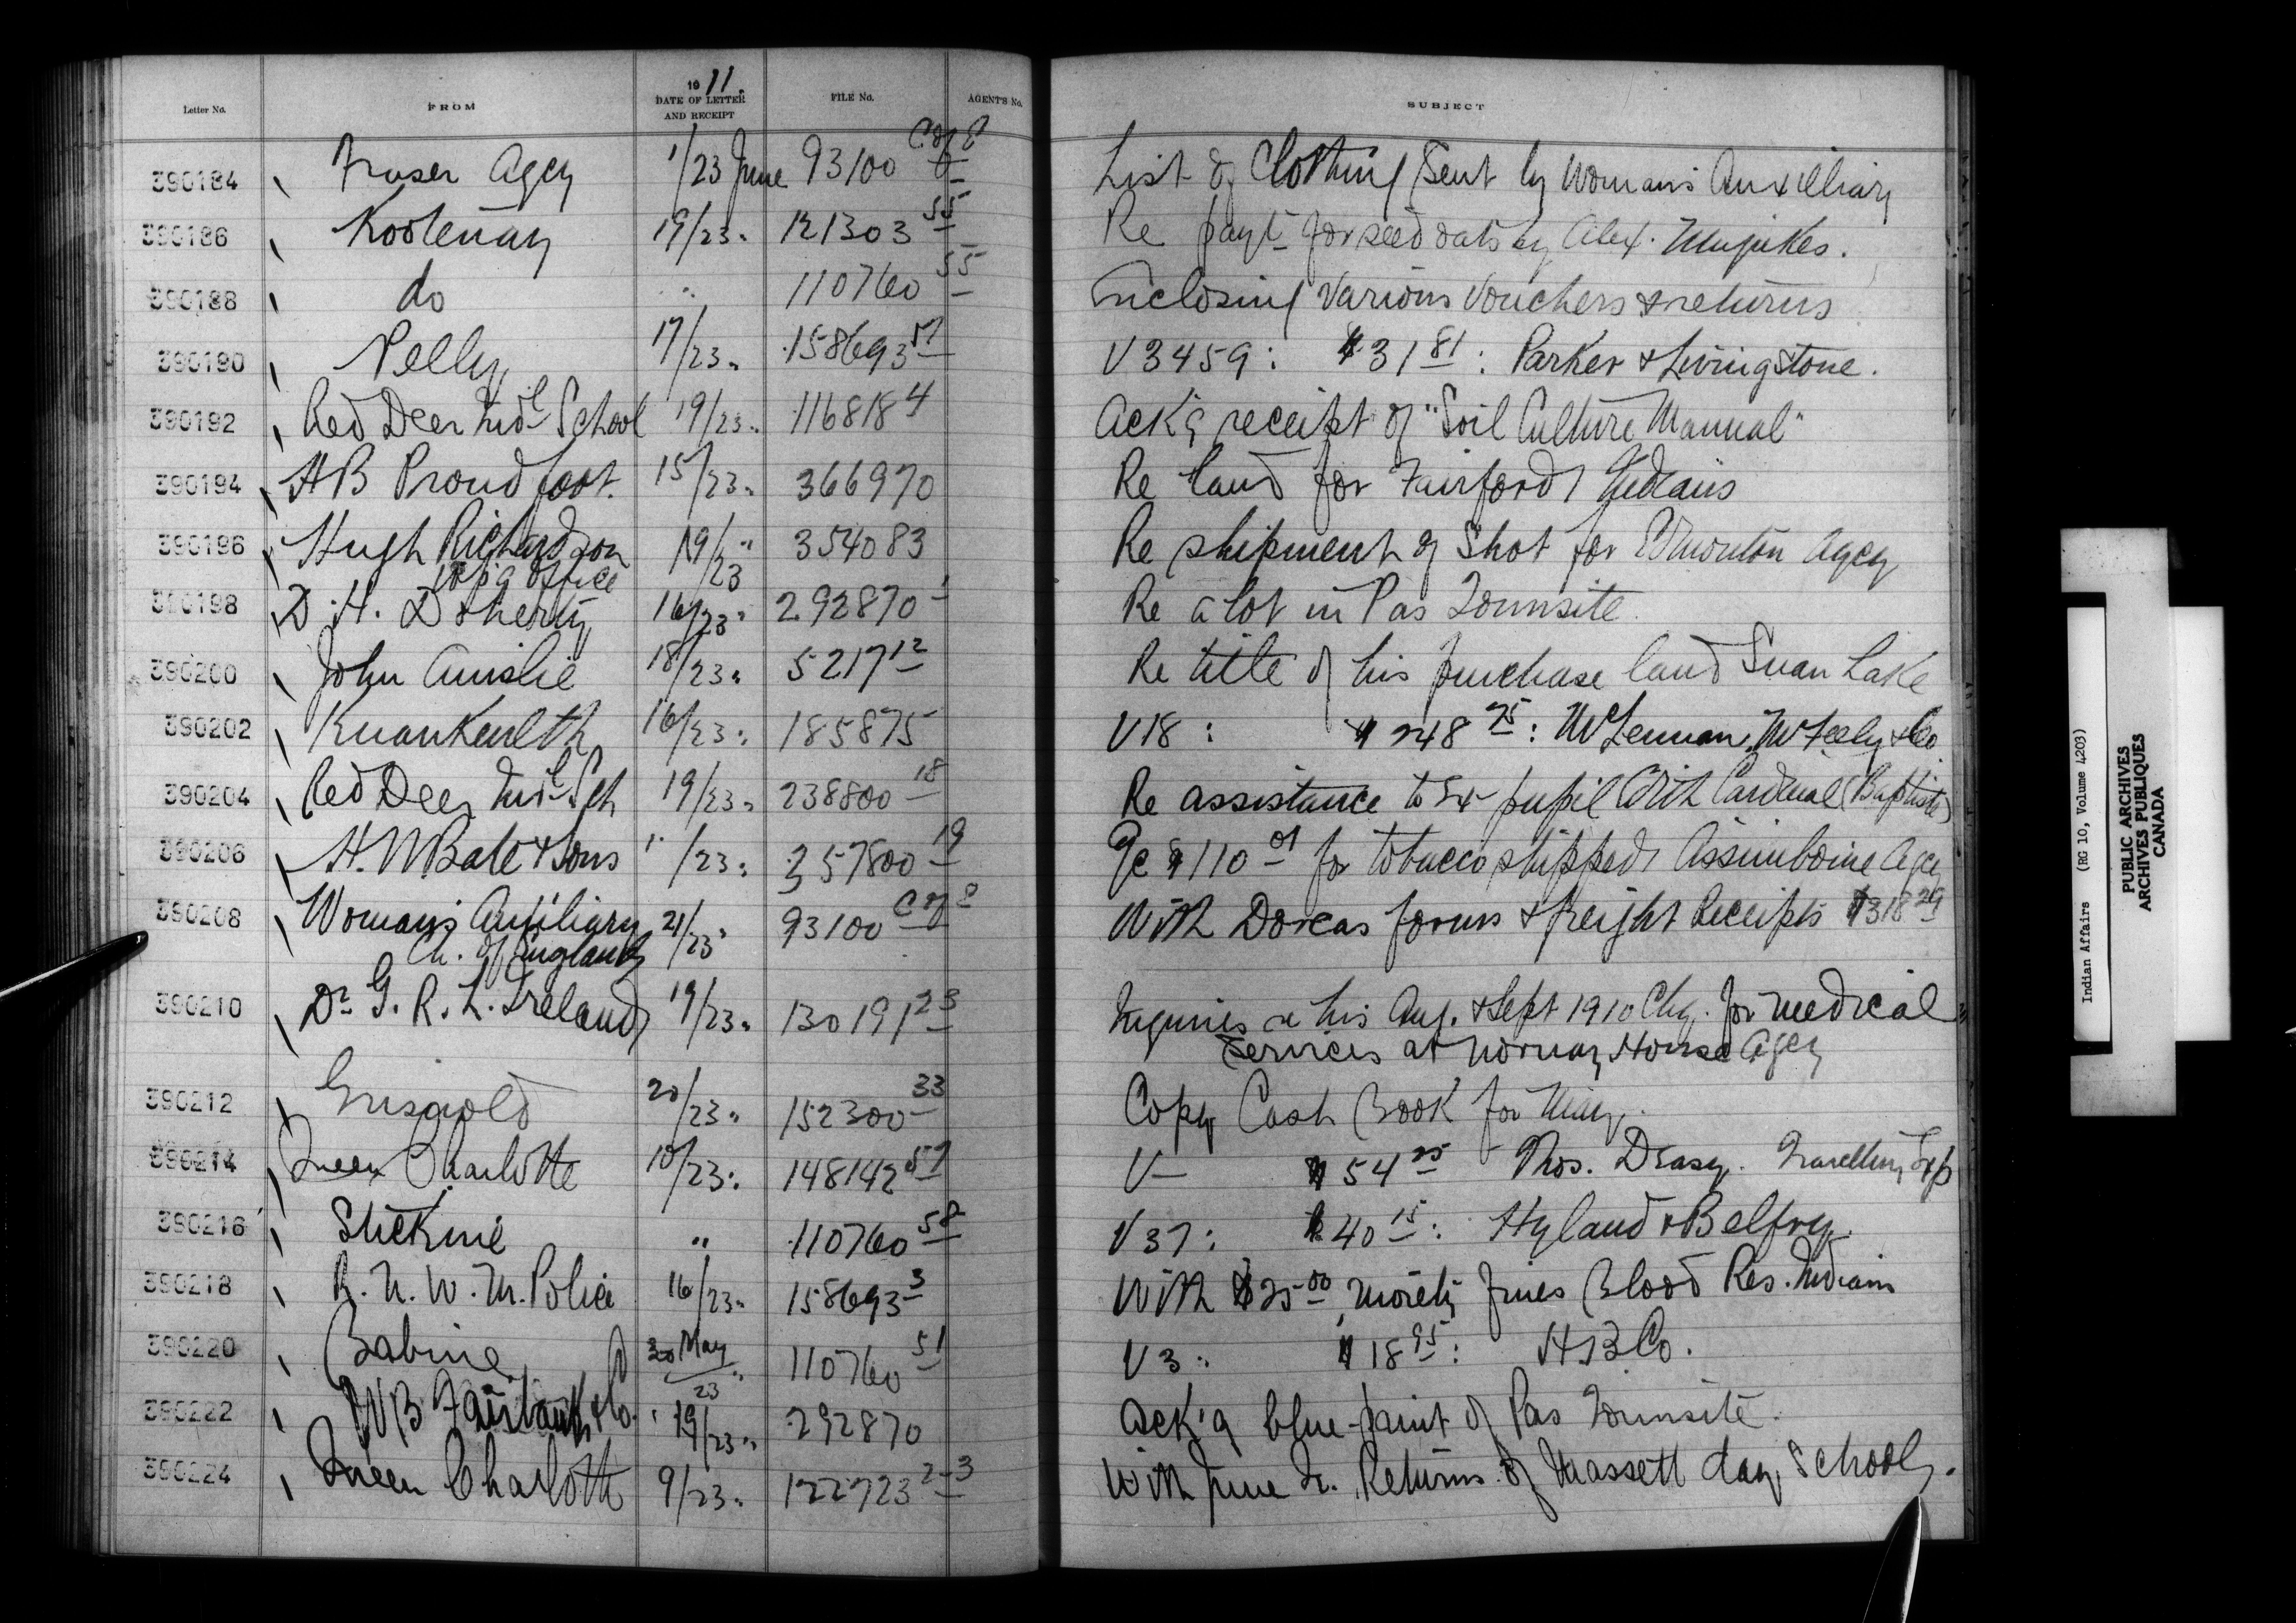 Letter No. FROM 1911. DATE OF LETTER AND RECEIPT FILE No. AGENT'S No. SUBJECT
390184 Fraser Agcy 1/23 June 93100 List of Clothing Sent by Womans Auxilliary
390186 Kootenay 19/23 " 121303 55 Re payt for seed oats by Alex.
390188 do " 110760 55 Enclosing Various Vouchers & returns
390190 Pelly 17/23 " 158693 57 V 3459 : $31 81 : Parker & Livingstone.
390192 Red Deer Indl School 19/23 " 116818 4 Ack'g receipt of "Soil Culture Manual"
390194 HB Proudfoot. 15/23 " 366970 Re land for Fairford Indians
390196 Hugh Richardson 19/23 " 354083 Re shipment of Shot for Edmonton Agcy
Wpg Office
390198 D. H. Doherty 16/23 " 292870 Re a lot in Pas Townsite.
390200 John Ainslie 18/23 " 5217 12 Re title of his purchase land Swan Lake
390202 Kwawkewlth 16/23 " 185875 V18 : $248 75 : McLennan, McFeely & Co
390204 Red Deer Indl Sch 19/23 " 238800 18 Re assistance to Ex-pupil Cardinal (Baptiste)
390206 H. N Bate & Sons " /23 " 357800 19 $110 01 for tobacco shipped Assiniboine Agcy
390208 Woman's Auxiliary 21/23 " 93100 With Dorcas forms & freight Receipts $318 29
Ch. of England
390210 Dr G. R. L. Ireland 19/23 " 130191 23 Inquiries re his Aug. & Sept 1910 Chg. for medical
services at Norway House Agcy
390212 Griswold 20/23 " 152300 33 Copy Cash Book for May.
390214 Queen Charlotte 10/23 " 148142 57 V— $54 25 Thos. Deasy. Travelling Exp
390216 Stickine " 110760 58 V 37 : $40 15 : Hyland & Belfry.
390218 R. N. W. M. Police 16/23 " 158693 3 With $25 00 moiety fines Blood Res. Indians
390220 Babine 30 May/23 " 110760 51 V 3 : $18 95 : H B Co.
390222 WB Fairbank & Co. 19/23 " 292870 Ack'g blue-print of Pas Townsite.
390224 Queen Charlotte 9/23 " 122723 2-3 With June Qr. Returns of Massett day School.
Indian Affairs (RG 10, Volume 4203)
PUBLIC ARCHIVES
ARCHIVES PUBLIQUES
CANADA